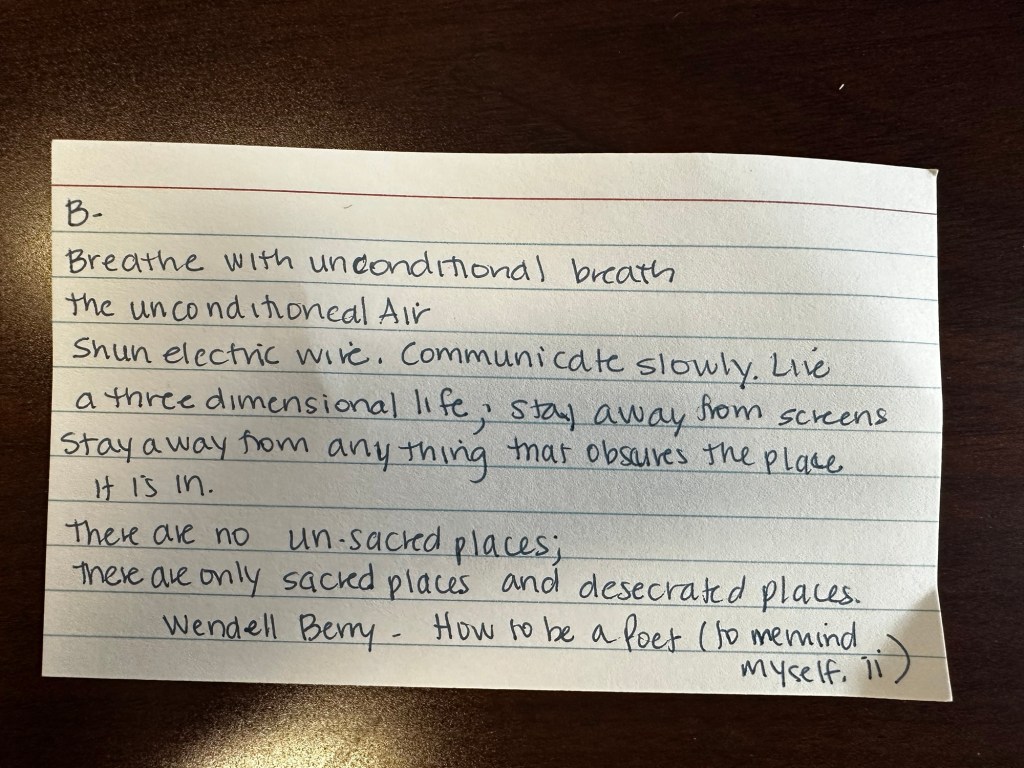 B-
Breathe with unconditional breath
the unconditioneal Air
Shun electric wire. Communicate slowly. Live
a three dimensional life; stay away from screens
Stay away from anything that obsures the place
it is in.
There are no un-sacred places;
These are only sacred places and desecrated places.
Wendell Berry - How to be a Poet (to memind
myself. ii)